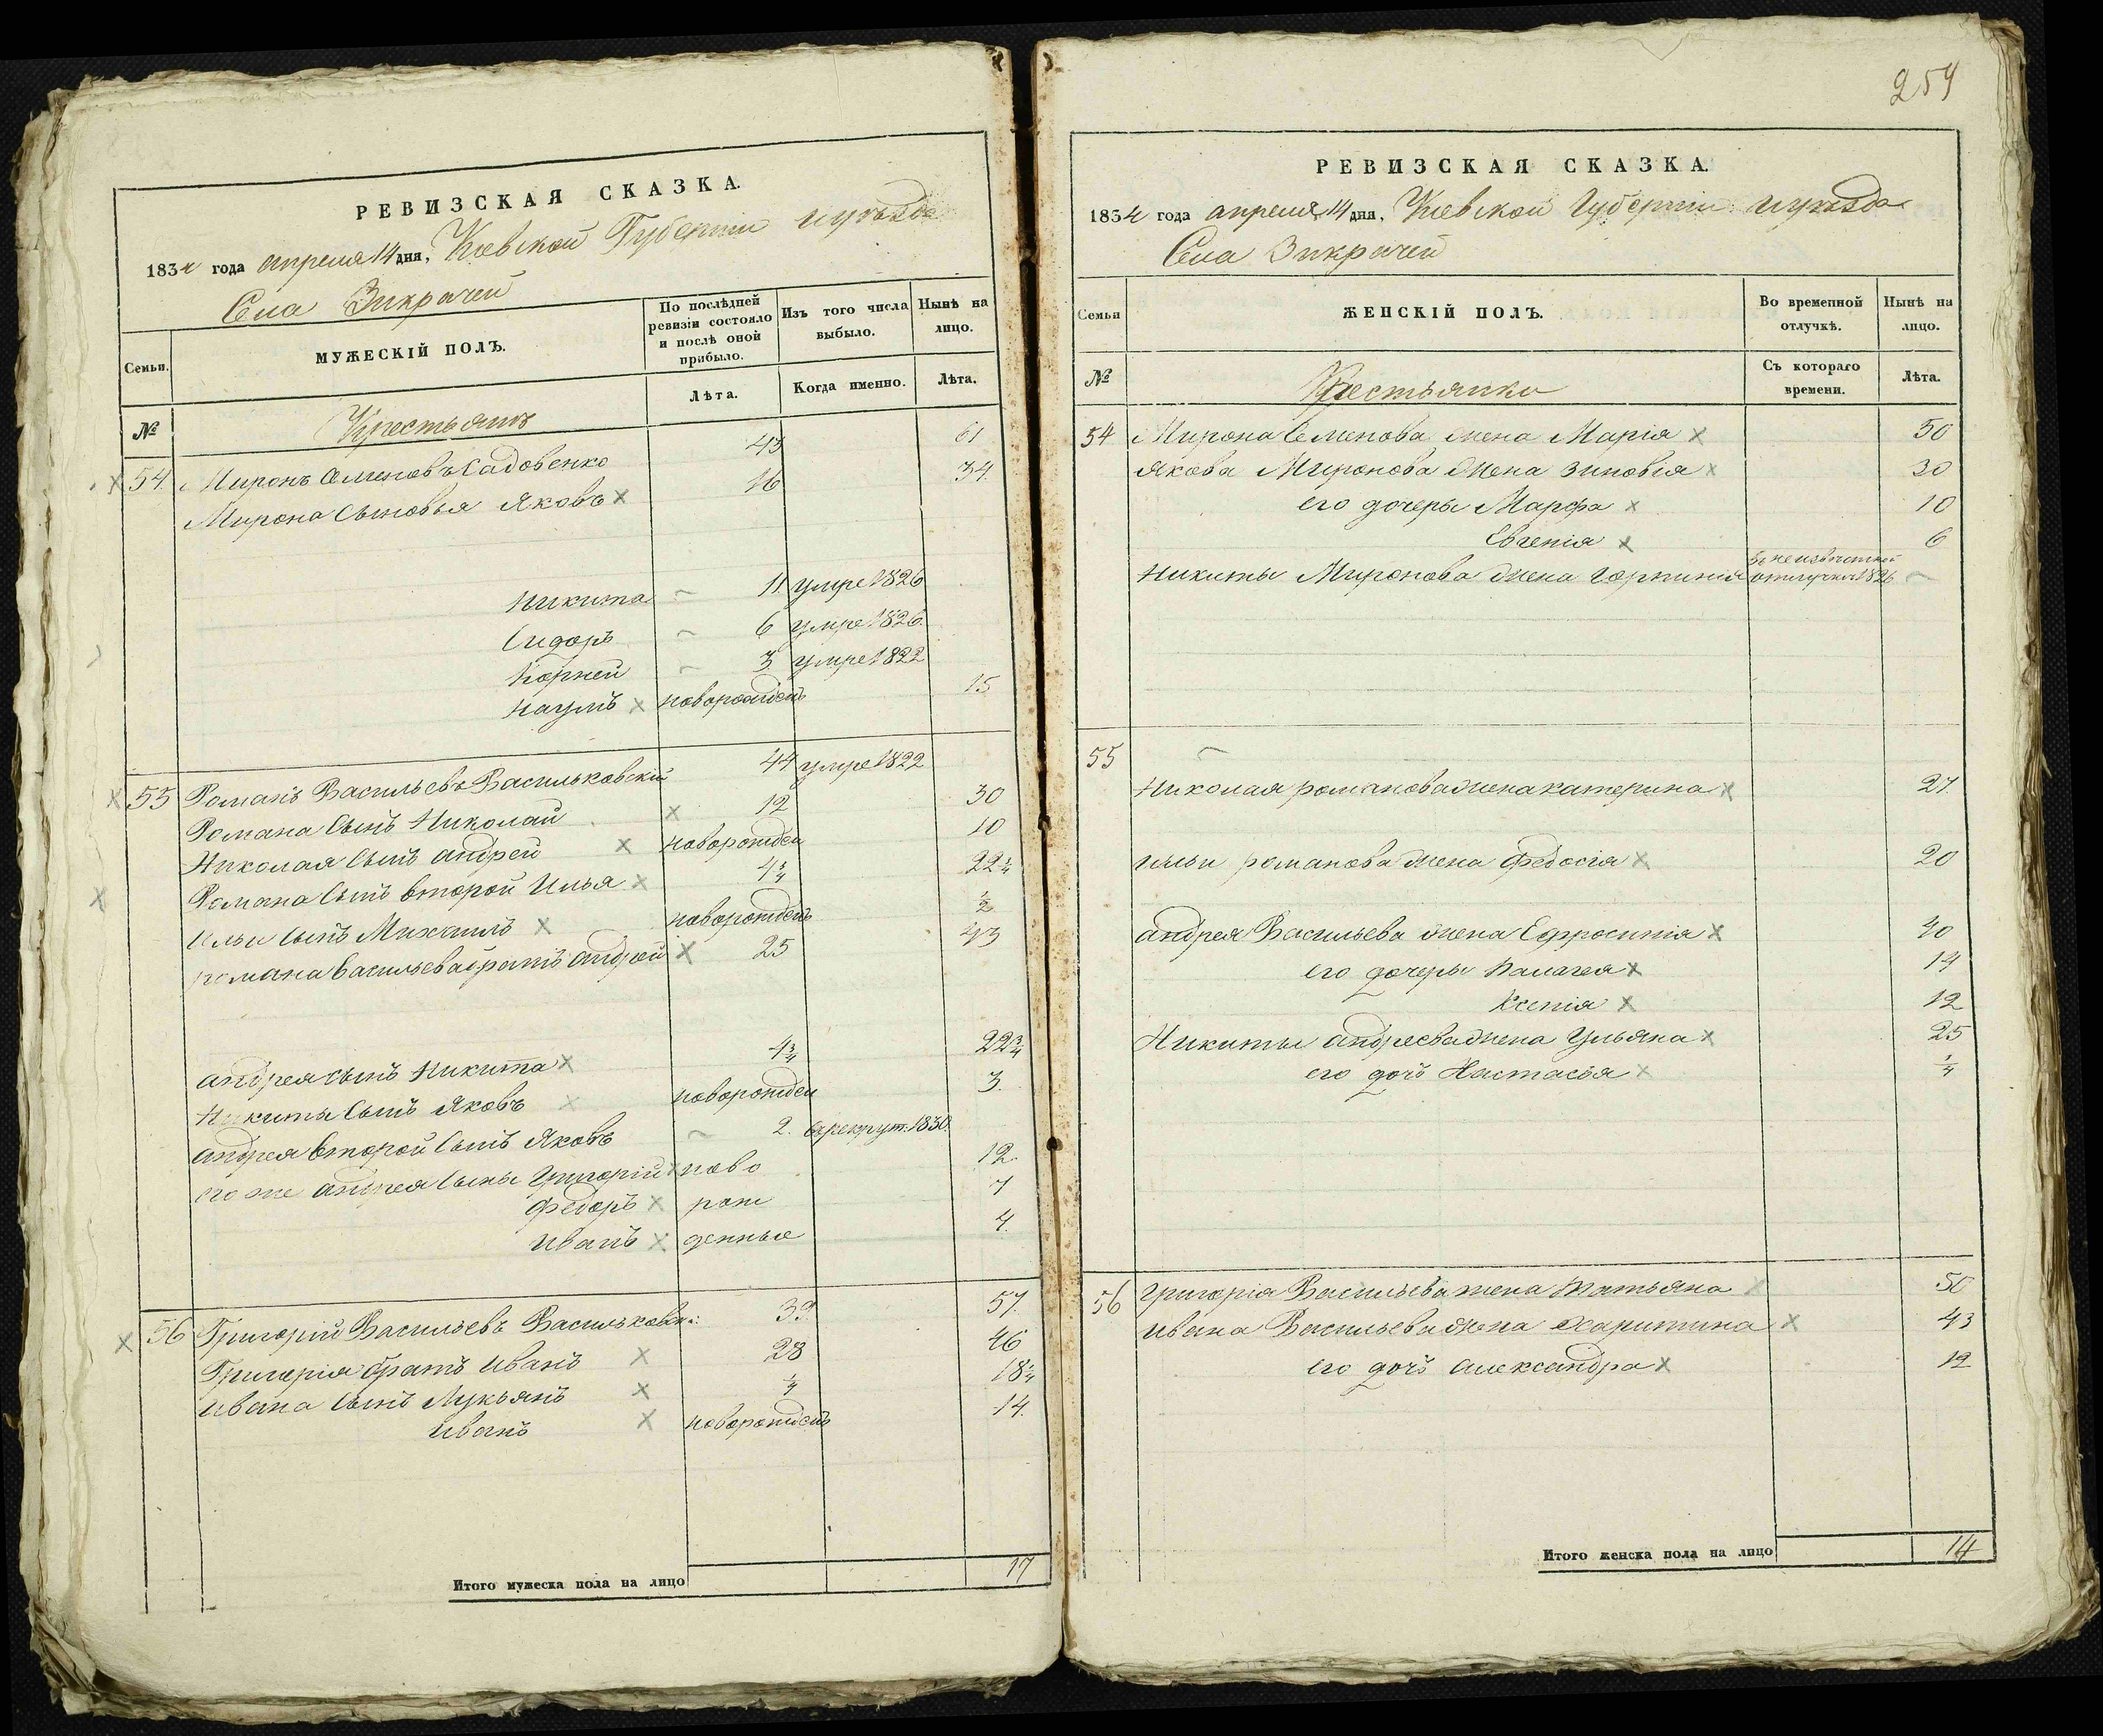 РЕВИЗСКАЯ СКАЗКА.
1834 года апреля 14 дня, Киевской Губернии и уезда
Села Зикрачей
Семьи.
МУЖЕСКІЙ ПОЛЪ.
По послѣдней ревизіи состояло и послѣ оной прибыло.
Изъ того числа выбыло.
Нынѣ на лицо.
№
Крестьянъ
Лѣта.
Когда именно.
Лѣта.
54. Миронъ Семеновъ Садовенко 43 61
Мирона сыновья Яковъ 16 34.
Никита 11 умре 1826
Сидоръ 6 умре 1826.
Корней 3 умре 1822
Наумъ новорожденъ 15
55 Романъ Васильевъ Васильковскій 44 умре 1822
Романа сынъ Николай 12 30
Николая сынъ андрей новорожден 10
Романа сынъ второй Илья 4 1/4 22 1/4
Ильи сынъ Михаилъ новорожденъ 1/2
романа васильева братъ андрей 25 43
андрея сынъ Никита 4 3/4 22 3/4
Никиты сынъ Яковъ новорожден 3.
андрея второй сынъ Яковъ 2. в рекрут. 1830.
его же андрея сыны Григорій ново 12.
Федоръ рож 7
иванъ денные 4.
56 Григорій Васильевъ Васильковск: 39 57.
Григорія братъ иванъ 28 46
ивана сынъ Лукьянъ 1/4 18 1/4
иванъ новорожденъ 14.
Итого мужеска пола на лицо 17
254
РЕВИЗСКАЯ СКАЗКА.
1834 года апреля 14 дня, Киевской Губернии и уезда
Села Зикрачей
Семьи
ЖЕНСКІЙ ПОЛЪ.
Во временной отлучкѣ.
Нынѣ на лицо.
№
Крестьянки
Съ котораго времени.
Лѣта.
54 Мирона Семенова жена Марія 50
Якова Миронова жена зиновія 30
его дочеры Марфа 10
Евгенія 6
Никиты Миронова жена горпинія в неизвестной отлучки 1826
55
Николая романова жена катерина 27.
ильи романова жена федосія 20
андрея Васильева жена Ефросинія 40
его дочеры Палагея 14
Ксенія 12
Никиты андреева жена Ульяна 25
его дочъ Настасья 1/4
56 григорія Васильева жена Татьяна 50
ивана Васильева жена харитина 43
его дочъ александра 12
Итого женска пола на лицо 14